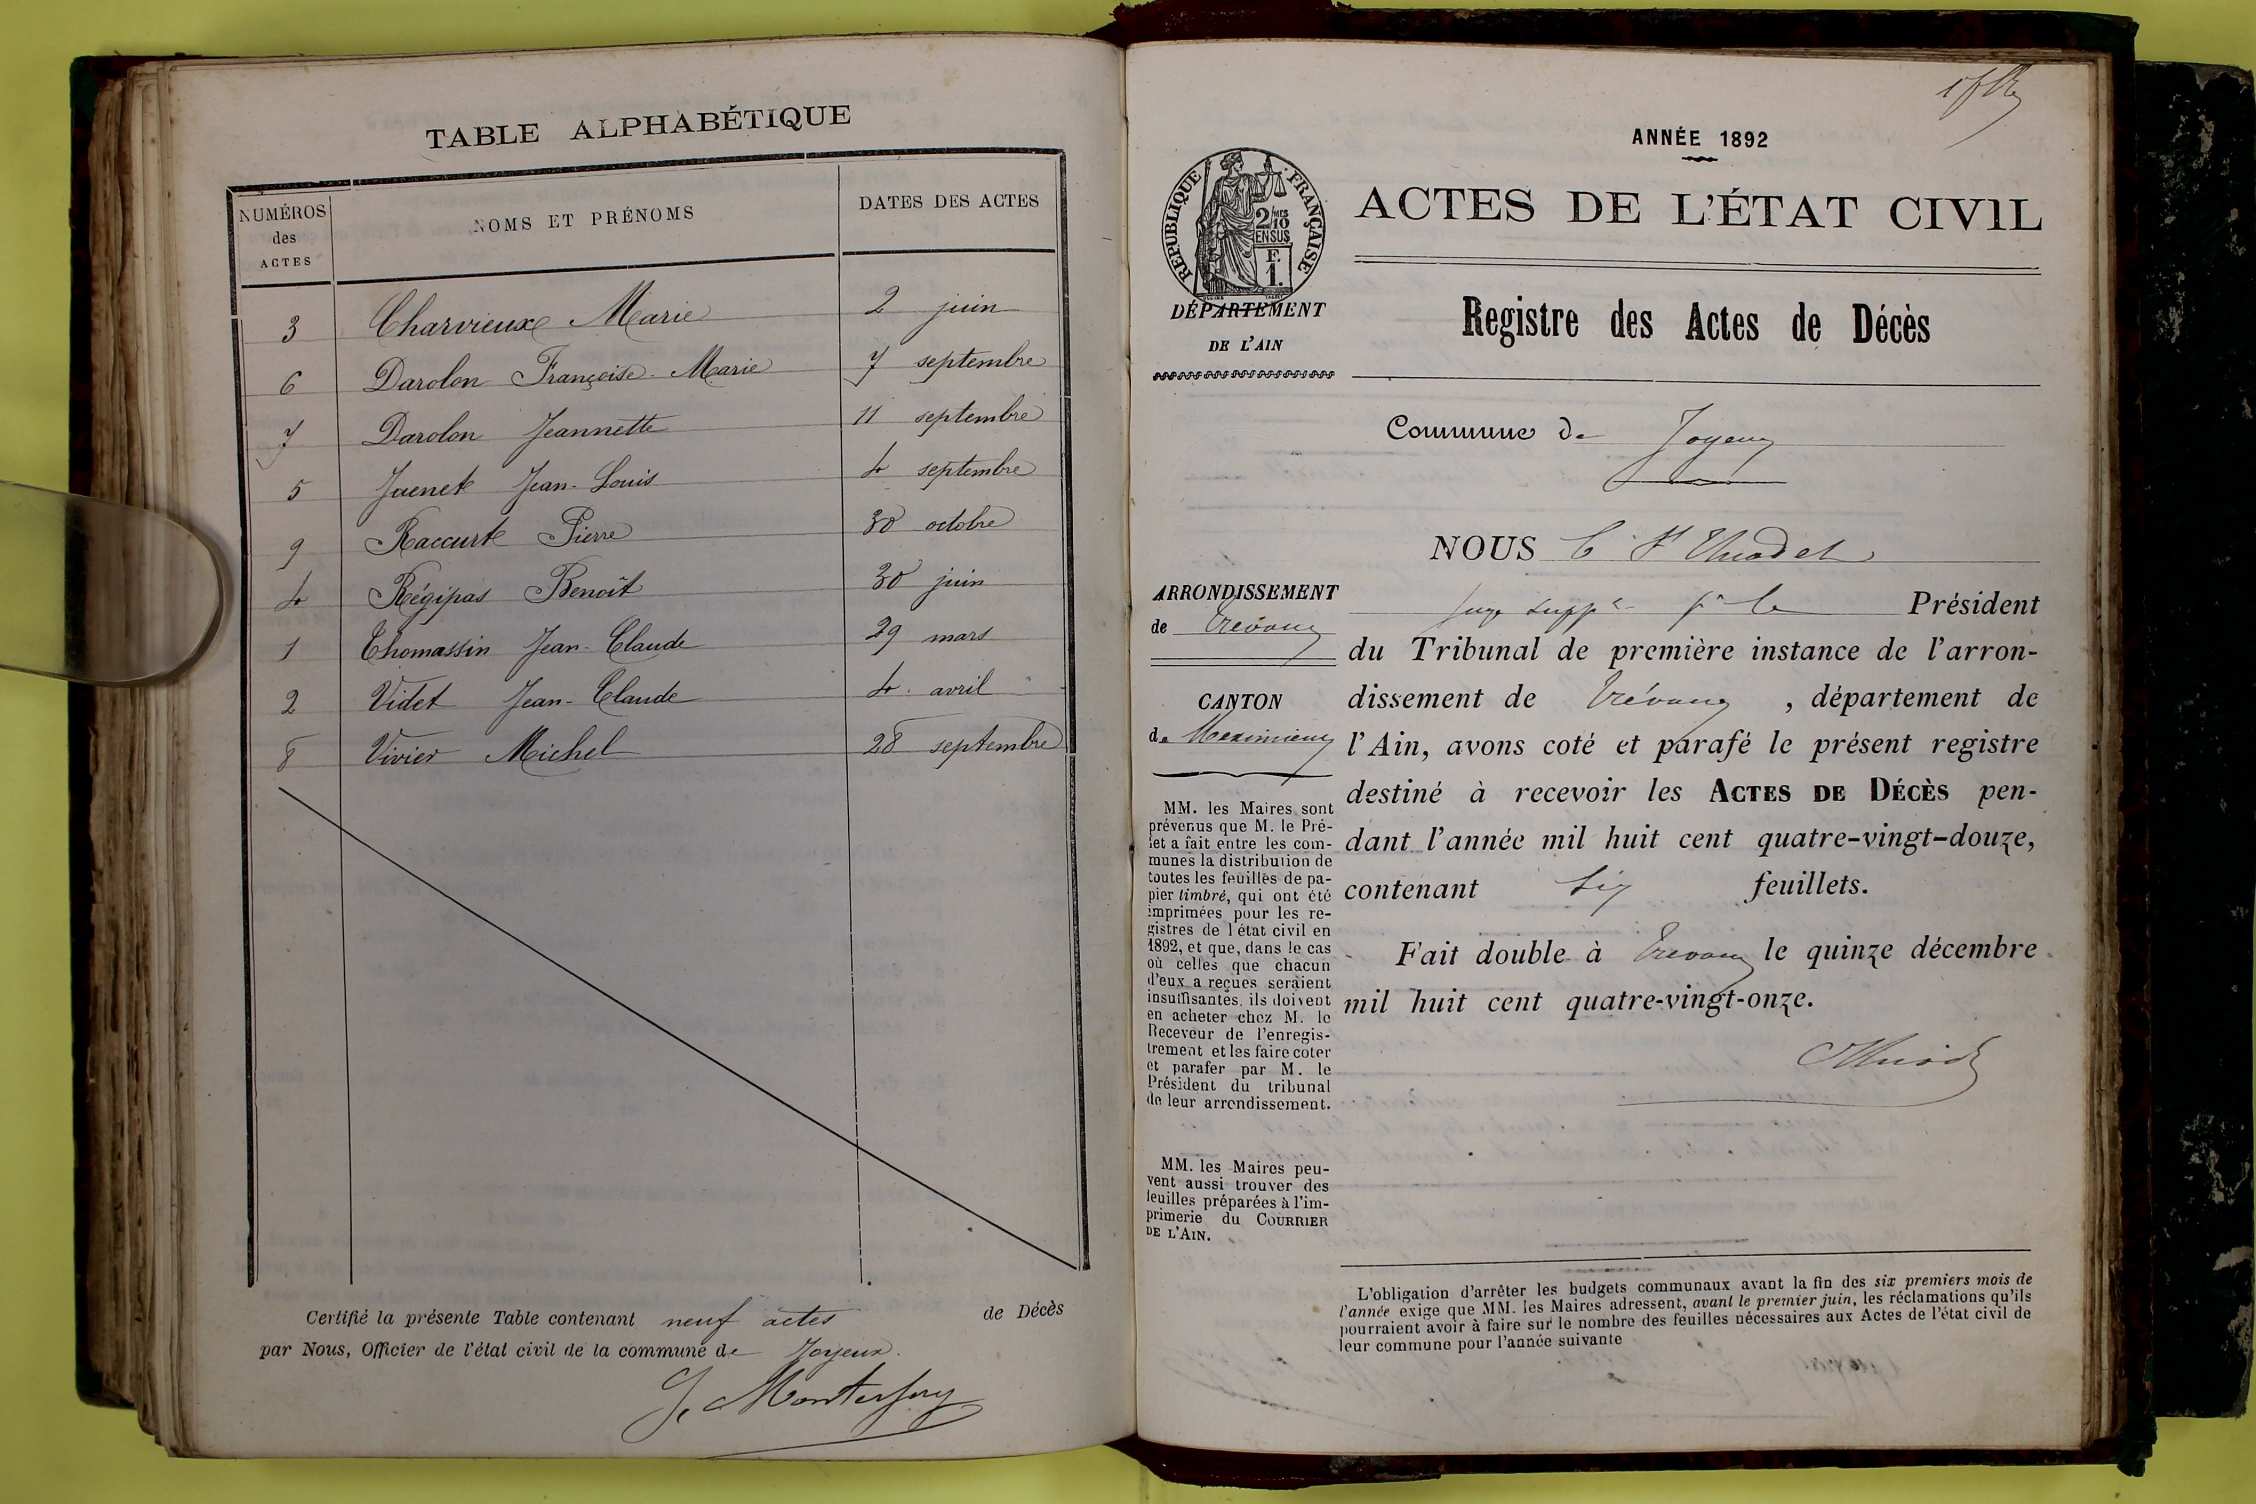 TABLE ALPHABÉTIQUE
NUMÉROS des ACTES | NOMS ET PRÉNOMS | DATES DES ACTES
3 Charvieux Marie 2 juin
6 Darolon Françoise-Marie 7 septembre
7 Darolon Jeannette 11 septembre
5 Juenet Jean-Louis 4 septembre
9 Raccurt Pierre 30 octobre
4 Régipas Benoît 30 juin
1 Thomassin Jean-Claude 29 mars
2 Videt Jean-Claude 4 avril
8 Vivier Michel 28 septembre
Certifié la présente Table contenant neuf actes de Décès
par Nous, Officier de l'état civil de la commune de Joyeux.
ANNÉE 1892
RÉPUBLIQUE FRANÇAISE
2/10 EN SUS
F. 1.
ACTES DE L'ÉTAT CIVIL
DÉPARTEMENT
DE L'AIN
Registre des Actes de Décès
Commune de Joyeux
ARRONDISSEMENT
de Trévoux
CANTON
de Meximieux
MM. les Maires sont
prévenus que M. le Pré-
fet a fait entre les com-
munes la distribution de
toutes les feuilles de pa-
pier timbré, qui ont été
imprimées pour les re-
gistres de l'état civil en
1892, et que, dans le cas
où celles que chacun
d'eux a reçues seraient
insuffisantes, ils doivent
en acheter chez M. le
Receveur de l'enregis-
trement et les faire coter
et parafer par M. le
Président du tribunal
de leur arrondissement.
MM. les Maires peu-
vent aussi trouver des
feuilles préparées à l'im-
primerie du COURRIER
DE L'AIN.
NOUS
Juge suppt pr le Président
du Tribunal de première instance de l'arron-
dissement de Trévoux, département de
l'Ain, avons coté et parafé le présent registre
destiné à recevoir les ACTES DE DÉCÈS pen-
dant l'année mil huit cent quatre-vingt-douze,
contenant six feuillets.
Fait double à Trévoux le quinze décembre
mil huit cent quatre-vingt-onze.
L'obligation d'arrêter les budgets communaux avant la fin des six premiers mois de
l'année exige que MM. les Maires adressent, avant le premier juin, les réclamations qu'ils
pourraient avoir à faire sur le nombre des feuilles nécessaires aux Actes de l'état civil de
leur commune pour l'année suivante